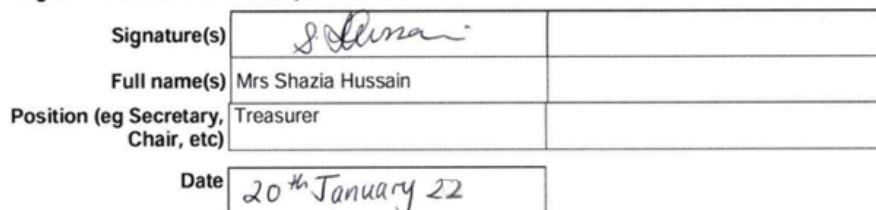 Signature(s) S. Hussain
Full name(s) Mrs Shazia Hussain
Position (eg Secretary, Treasurer
Chair, etc)
Date 20th January 22